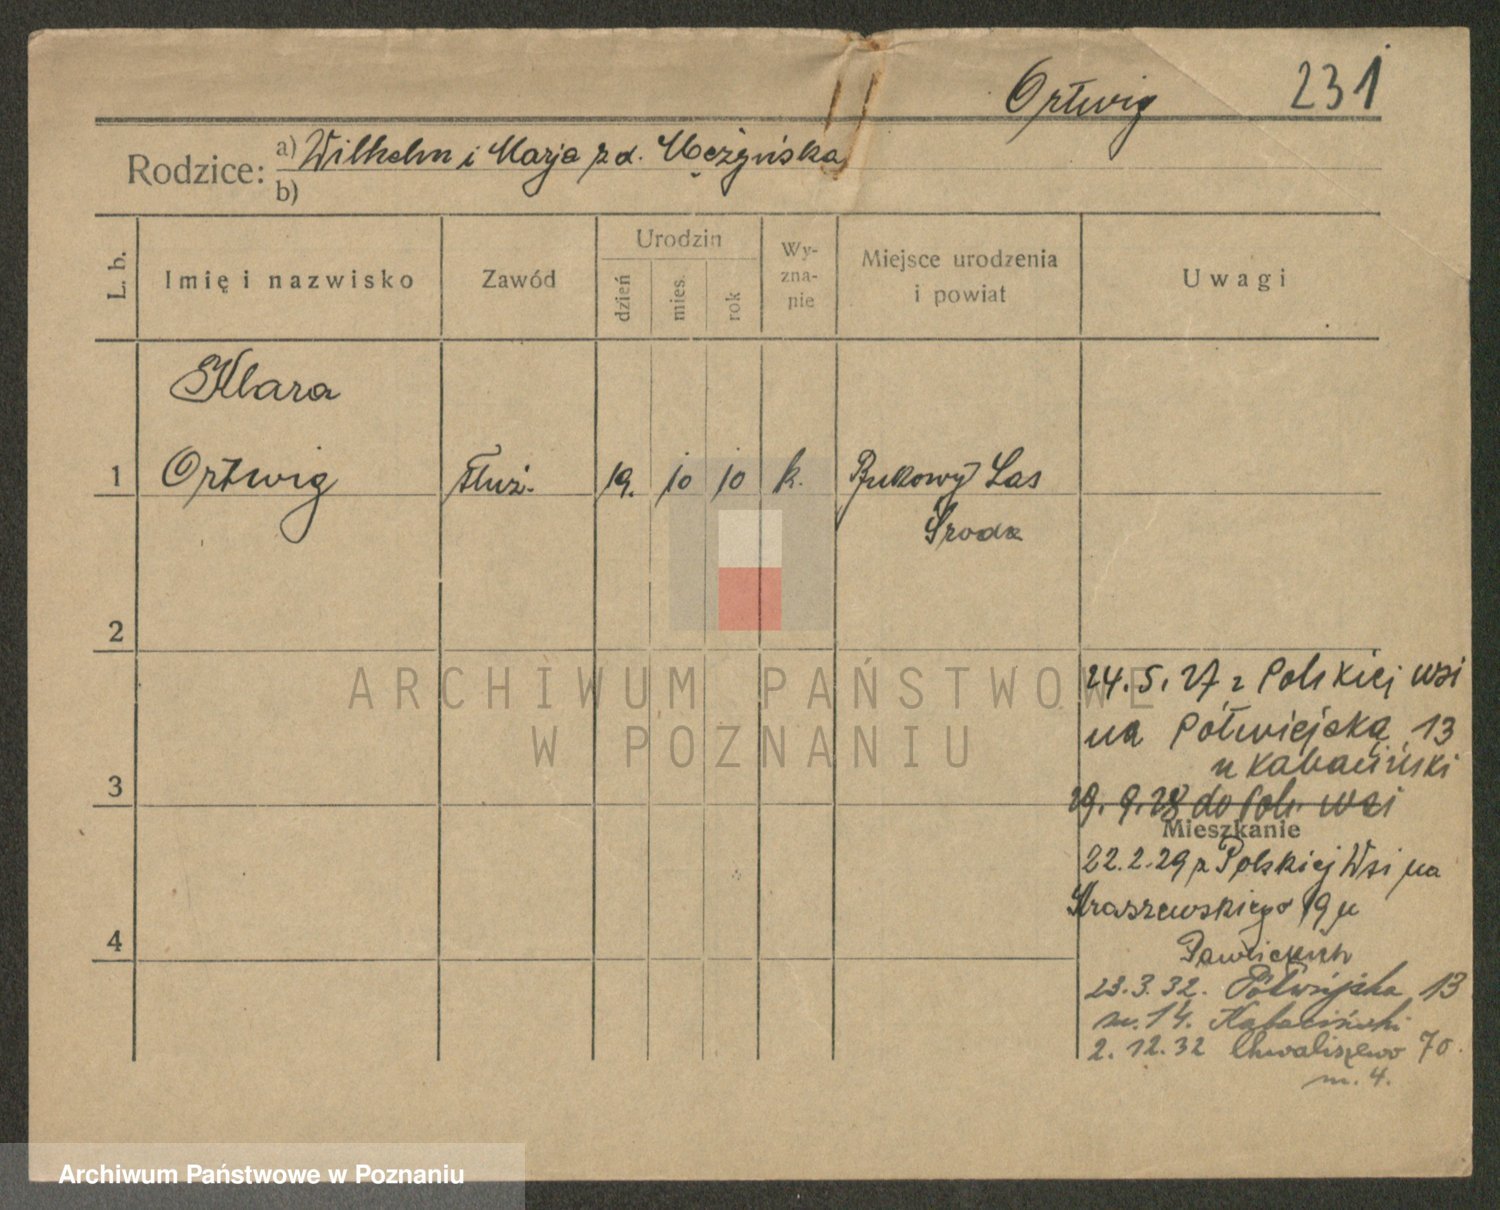 Ortwig 231
Rodzice: a) Wilhelm i Marja z d. Mężyńska
b)
L. b.
Imię i nazwisko
Zawód
Urodzin
dzień
mies.
rok
Wy-
zna-
nie
Miejsce urodzenia
i powiat
Uwagi
Klara
1 Ortwig służ. 19. 10 10 k. Bukowy Las
Środa
2
24.5.27 z Polskiej wsi
na Półwiejską 13
u Kabaciński
29.9.28 do Pol. wsi
3
Mieszkanie
22.2.29 z Polskiej Wsi na
Kraszewskiego 19 u
Pawlickich
4
23.3.32. Półwiejska 13
m. 14. Kabaciński
2.12.32 Chwaliszewo 70.
m. 4.
ARCHIWUM PAŃSTWOWE
W POZNANIU
Archiwum Państwowe w Poznaniu